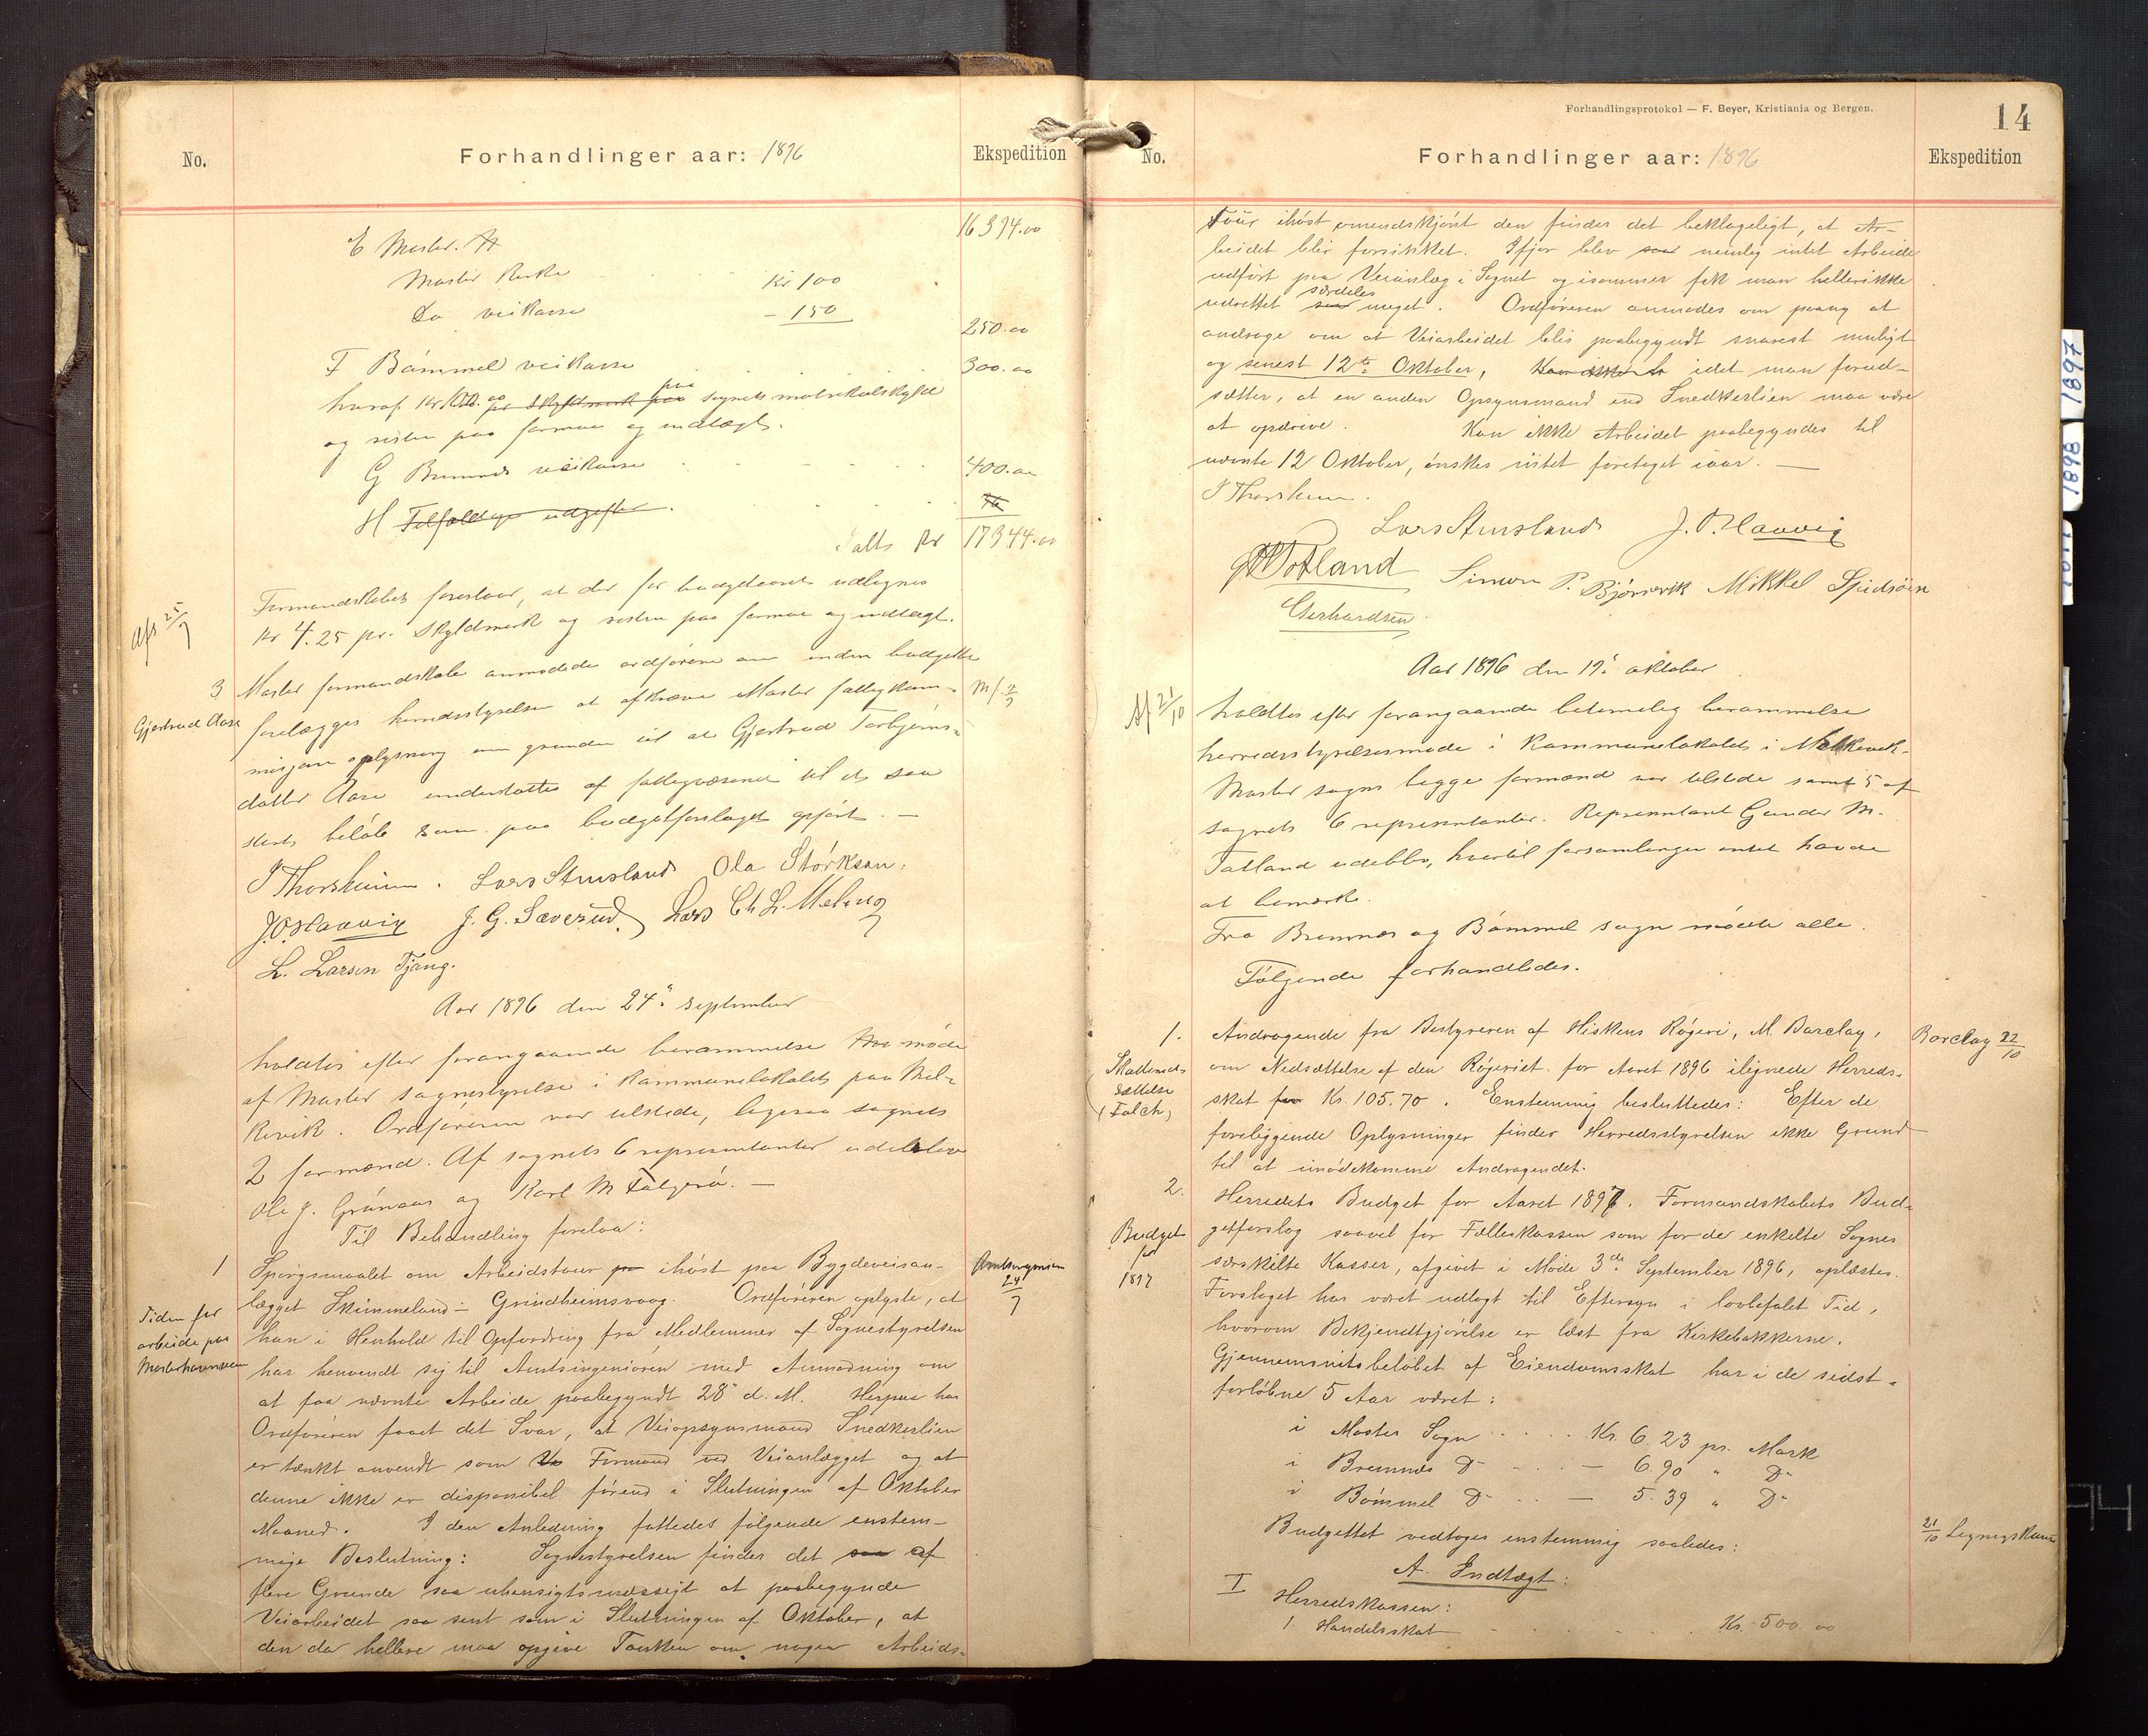 No.
Forhandlinger aar: 1896
Ekspedition
16394.00
E Moster
Moster Kirke Kr 100
Do veikasse - 150
250.00
F Bømmel veikasse 300.00
paa
hvoraf Kr pr Skyldmark paa sognets matrikulskyld
og resten paa formue og indtægt.
G Bremnes veikasse 400.00
H Tilfældige udgifter
Ialt Kr 17344.00
Formandskabet foreslaar, at der for budgetaaret udlignes
Kr 4.25 pr. Skyldmark og resten paa formue og indtægt.
3
Gjertrud Aase
Moster formandskab anmodede ordføreren om inden budgettet
forelægges herredsstyrelsen at afkræve Moster fattigkom-
mission oplysning om grunden til at Gjertrud Torbjørns-
datter Aase understøttes af fattigvæsenet til et saa
stort beløb som paa budgetforslaget opført. -
I Thorsheim. Lars Stensland Ola Størkson.
J. O. Haavig J. G. Sæverud. Lars Ch. L. Meling
L. Larsen Tjong.
Aar 1896 den 24de september
holdtes efter forangaaende berammelse møde
af Moster sognestyrelse i kommunelokalet paa Mel-
kevik. Ordføreren var tilstede, ligesaa sognets
2 formænd. Af sognets 6 repræsentanter udeblev
Ole J. Grønaas og Karl M Følgerø. -
Til Behandling forelaa:
1
Tiden for
arbeide paa
Mosterhavnveien
Amtsingeniøren
24
Spørgsmaalet om Arbeidstour ihøst paa Bygdeveisan-
lægget Skimmeland - Grindheimsvaag. Ordføreren oplyste, at
han i Henhold til Opfordring fra Medlemmer af Sognestyrelsen
har henvendt sig til Amtsingeniøren med Anmodning om
at faa nævnte Arbeide paabegyndt 28de d. M. Herpaa har
Ordføreren faaet det Svar, at Veiopsynsmand Snedkerlien
er tænkt anvendt som Formand ved Veianlægget og at
denne ikke er disponibel førend i Slutningen af Oktober
Maaned. I den Anledning fattedes følgende enstem-
mige Beslutning: Sognestyrelsen finder det saa af
flere Grunde saa uhensigtsmæssigt at paabegynde
Veiarbeidet saa sent som i Slutningen af Oktober, at
den da hellere maa opgive Tanken om nogen Arbeids-
Forhandlingsprotokol — F. Beyer, Kristiania og Bergen.
14
No.
Forhandlinger aar: 1896
Ekspedition
Tour ihøst omendskjønt den finder det beklageligt, at Ar-
beidet blir forsinket. Ifjor blev saa nemlig intet Arbeide
udført paa Veianlæg i Sognet og isommer fik man hellerikke
særdeles
udrettet saa meget. Ordføreren anmodes om paany at
andrage om at Veiarbeidet blir paabegyndt snarest muligt
og senest 12te Oktober, idet man forud-
sætter, at en anden Opsynsmand end Snedkerlien maa være
at opdrive. Kan ikke Arbeidet paabegyndes til
nævnte 12 Oktober, ønskes intet foretaget iaar. -
I Thorsheim.
Lars Stensland J. O. Haavig
Totland Simon P. Bjørnevik Mikkel Spidsøen
Gerhardsen
Aar 1896 den 19de oktober
Af 21/10
holdtes efter forangaaende betimelig berammelse
herredsstyrelsesmøde i kommunelokalet i Melkevik.
Moster sogns begge formænd var tilstede samt 5 af
sognets 6 repræsentanter. Repræsentant Gunder M.
Totland udeblev, hvortil forsamlingen intet havde
at bemærke.
Fra Bremnes og Bømmel sogn mødte alle.
Følgende forhandledes.
1.
Skattened-
sættelse
(Falch)
Barclay 22/10
Andragende fra Bestyreren af Hiskens Røgeri, M. Barclay,
om Nedsættelse af den Røgeriet for Aaret 1896 ilignede Herreds-
skat Kr. 105.70. Enstemmig besluttedes: Efter de
foreliggende Oplysninger finder Herredsstyrelsen ikke Grund
til at imødekomme Andragendet.
2.
Budget
for
1897
Herredets Budget for Aaret 1897. Formandskabets Bud-
getforslag saavel for Fælleskassen som for de enkelte Sognes
særskilte Kasser, afgivet i Møde 3de September 1896, oplæstes.
Forslaget har været udlagt til Eftersyn i lovbefalet Tid,
hvorom Bekjendtgjørelse er læst fra Kirkebakkerne.
Gjennemsnitsbeløbet af Eiendomsskat har i de sidst-
forløbne 5 Aar været:
i Moster Sogn . . . . Kr. 6.23 pr. Mark
i Bremnes D- . . . — 6.90 " D-
i Bømmel D- . . — 5.39 " D-
Budgettet vedtoges enstemmig saaledes:
21/10 Ligningskom
A. Indtægt:
I Herredskassen:
1. Handelsskat . . . . Kr. 500.00
1897
1898